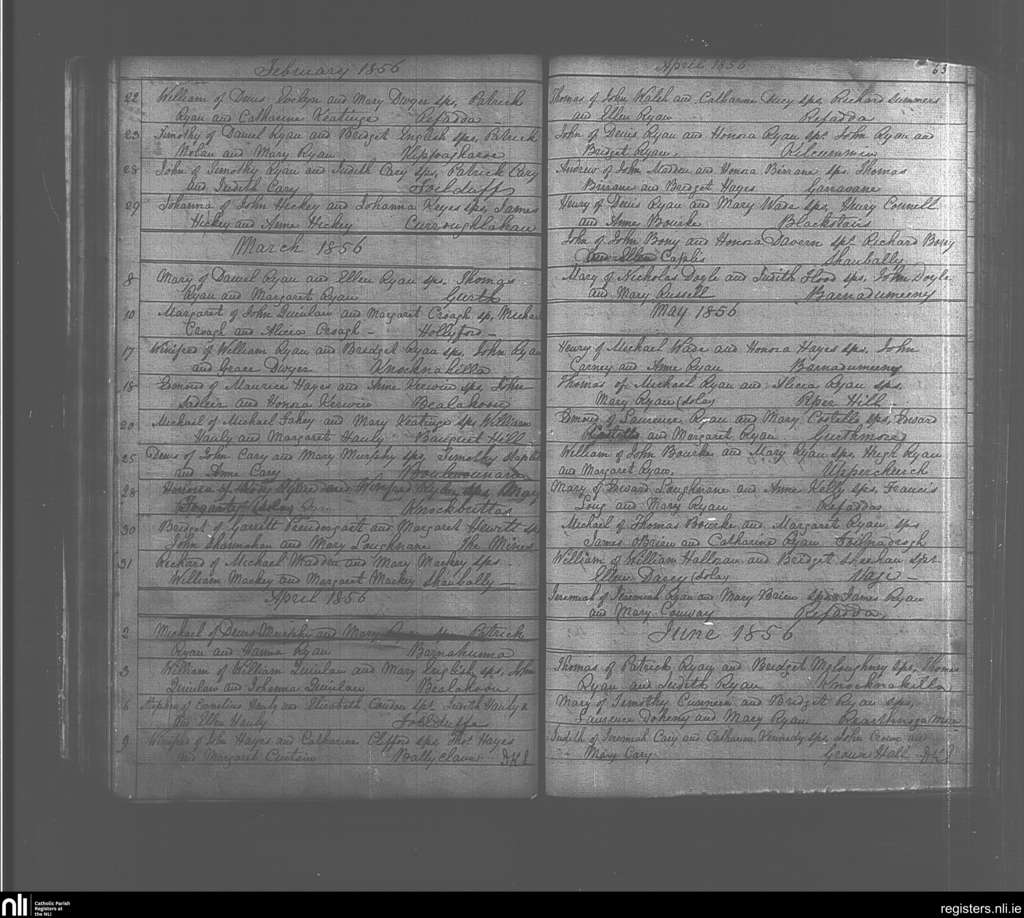 February 1856
22 William of Denis Evelyn and Mary Dwyer sps, Patrick
Ryan and Catharine Keatinge Refadda
23 Timothy of Daniel Ryan and Bridget English sps, Patrick
Nolan and Mary Ryan
28 John of Timothy Ryan and Judith Cary sps, Patrick Cary
and Judith Cary
29 Johanna of John Hickey and Johanna Keyes sps, James
Hickey and Anne Hickey Curroughlahan
March 1856
8 Mary of Daniel Ryan and Ellen Ryan sps, Thomas
Ryan and Margaret Ryan
10 Margaret of John Quinlan and Margaret Creagh sp, Michael
Creagh and Alicia Creagh - Hollyford -
17 Winifred of William Ryan and Bridget Ryan sps, John Ryan
and Grace Dwyer Knocknakilla
18 Edmond of Maurice Hayes and Anne Kerwin sps, John
Sadleir and Honora Kerwin Bealakoon
20 Michael of Michael Fahey and Mary Keatinge sps William
Hauly and Margaret Hauly Banquet Hill
25 Denis of John Cary and Mary Murphy sps, Timothy
and Anne Cary
28 of and Winifred sps, Mary
Fogarty (Solos) Knockbuttas
30 Bridget of Garrett Prendergast and Margaret Hewitt sp
John Shannahan and Mary Loughnane The Mines
31 Richard of Michael Madden and Mary Mackey sps -
William Mackey and Margaret Mackey Shanbally -
April 1856
2 Michael of Denis Murphy and Mary sps Patrick
Ryan and Hanna Ryan Barnahuma
3 William of William Quinlan and Mary English sps, John
Quinlan and Johanna Quinlan Bealakoon
6 of Hauly and Elizabeth sps Judith Hauly &
Ellen Hauly
9 Winifred of John Hayes and Catharine Clifford sps, Thos Hayes
and Margaret Curtain Ballyclawn
April 1856
63
Thomas of John Walsh and Catharine sps, Richard Summers
and Ellen Ryan Refadda
John of Denis Ryan and Honora Ryan sps John Ryan and
Bridget Ryan, Kilcummin
Andrew of John Madden and Honora Birrane sps Thomas
Birrane and Bridget Hayes Garravane
Henry of Denis Ryan and Mary Wade sps, Henry Connell
and Anne Bourke Blackstairs
John of John Bony and Honora Tavern sps Richard Bony
and Ellen Caplis Shanbally
Mary of Nicholas Doyle and Judith Flood sps, John Doyle
and Mary Russell Barnadumeeny
May 1856
Henry of Michael Wade and Honora Hayes sps, John
Carney and Anne Ryan Barnadumeeny
Thomas of Michael Ryan and Alicia Ryan sps,
Mary Ryan (Solo) Piper Hill
Edmond of Laurence Ryan and Mary Costello sps, Edward
Costello and Margaret Ryan Gurthmore
William of John Bourke and Mary Ryan sps, Hugh Ryan
and Margaret Ryan, Upperchurch
Mary of Edward Loughnane and Anne Kelly sps, Francis
Long and Mary Ryan Refadda
Michael of Thomas Bourke and Margaret Ryan sps
James OBrien and Catharine Ryan
William of William Halloran and Bridget Sheehan sps
Ellen Darcy (Solo)
Jeremiah of Jeremiah Ryan and Mary OBrien sps James Ryan
and Mary Conway Refadda
June 1856
Thomas of Patrick Ryan and Bridget Mgloughney sps, Thomas
Ryan and Judith Ryan Knocknakilla
Mary of Timothy Cunneen and Bridget Ryan sps,
Laurence Doheny and Mary Ryan
Judith of Jeremiah Cary and Catharine Kennedy sps, John Crowe and
Mary Cary Green Hall
nli Catholic Parish
Registers at
the NLI
registers.nli.ie